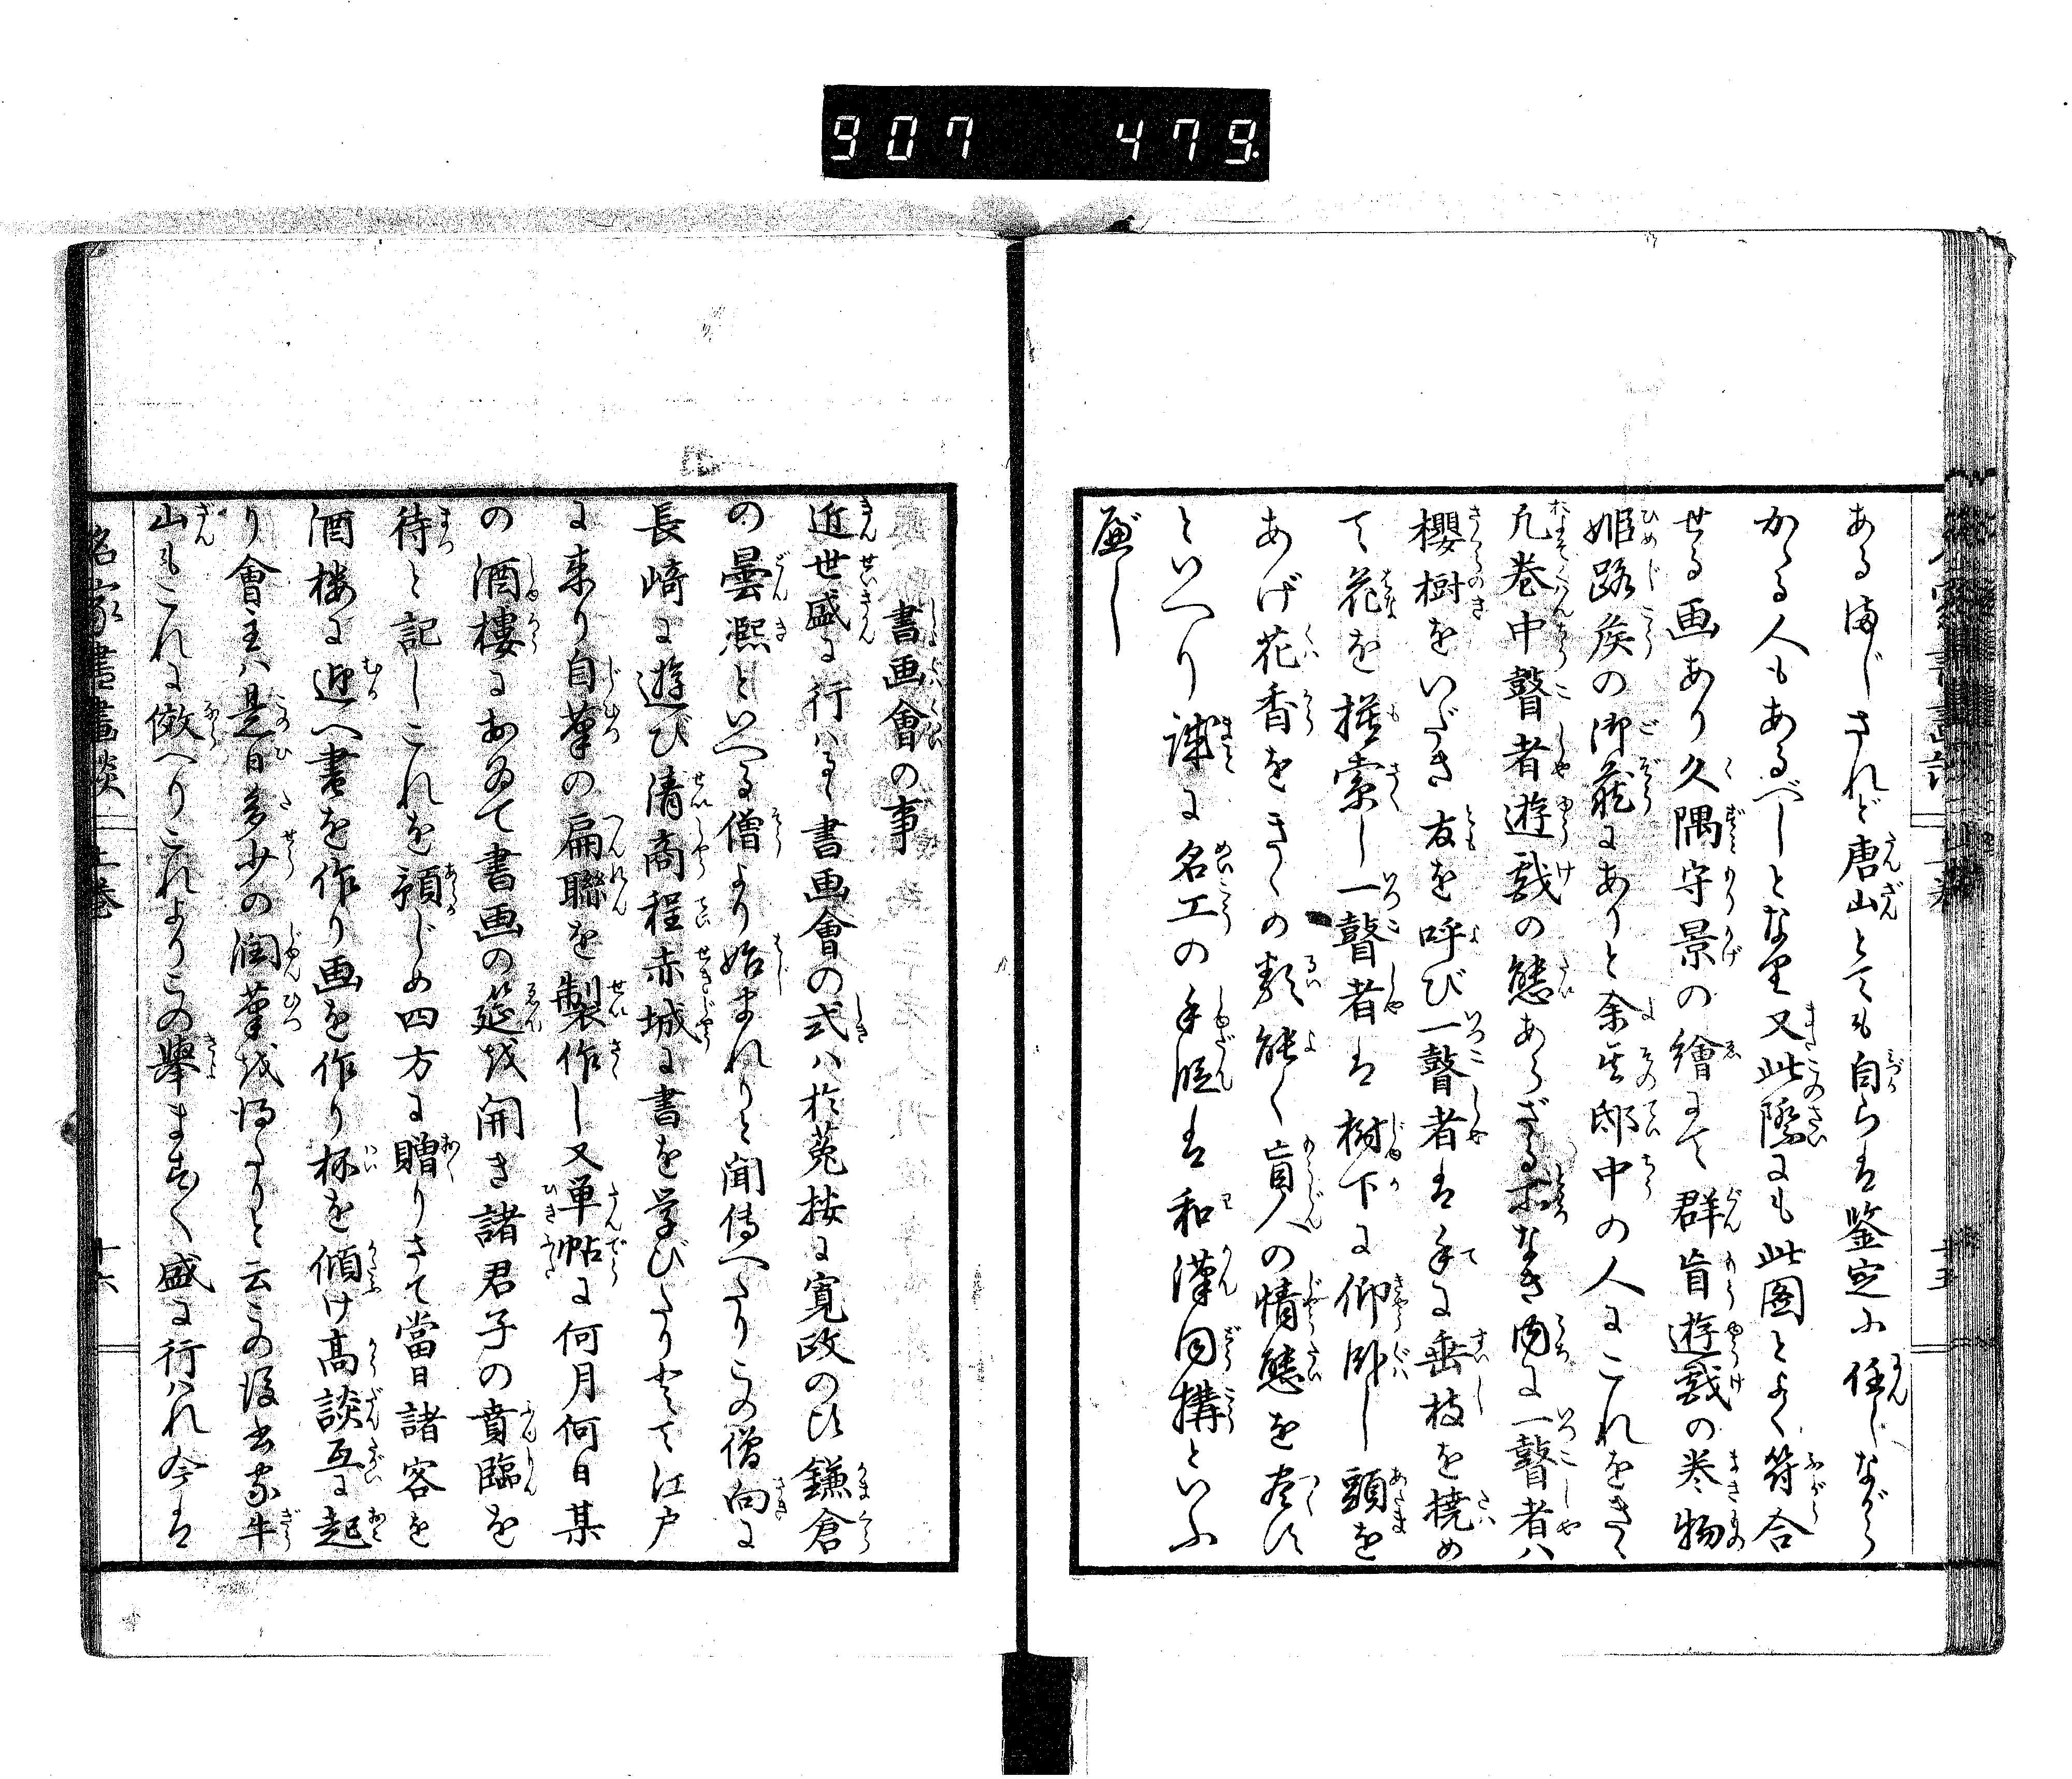 907 479
ある事じされど唐山とても自らは鑒定に任じながら
かゝる人もあるべしとなむ又此際にも此図とよく符合
せる画あり久隅守景の繪にて群盲遊戯の巻物
姫路侯の御蔵にありと余其邸中の人にこれをきく
凡巻中瞽者遊戯の態あらざる所なき內に一瞽者ハ
櫻樹をいだき友を呼び一瞽者は手に垂枝を撓め
て花を摸索し一瞽者は樹下に仰卧し頭を
あげ花香をきくの類能く盲人の情態を尽す
といへり誠に名工の手段は和漢同搆といふ
べし
書画會の事
近世盛に行ハるゝ書画會の式ハ於菟按に寛政の頃鎌倉
の曇凞といへる僧より始まれりと聞傳へたりこの僧向に
長﨑に遊び清商程赤城に書を学びたりとて江戸
に来り自筆の扁聯を製作し又単帖に何月何日某
の酒樓におゐて書画の筵を開き諸君子の賁臨を
待と記しこれを預じめ四方に贈りさて當日諸客を
酒楼に迎へ書を作り画を作り杯を傾け高談互に起
り會主ハ是日多少の潤筆を得たりと云この後書家牛
山もこれに傚へりこれよりこの舉ますく盛に行ハれ今は
名家書畫談 上巻 十六